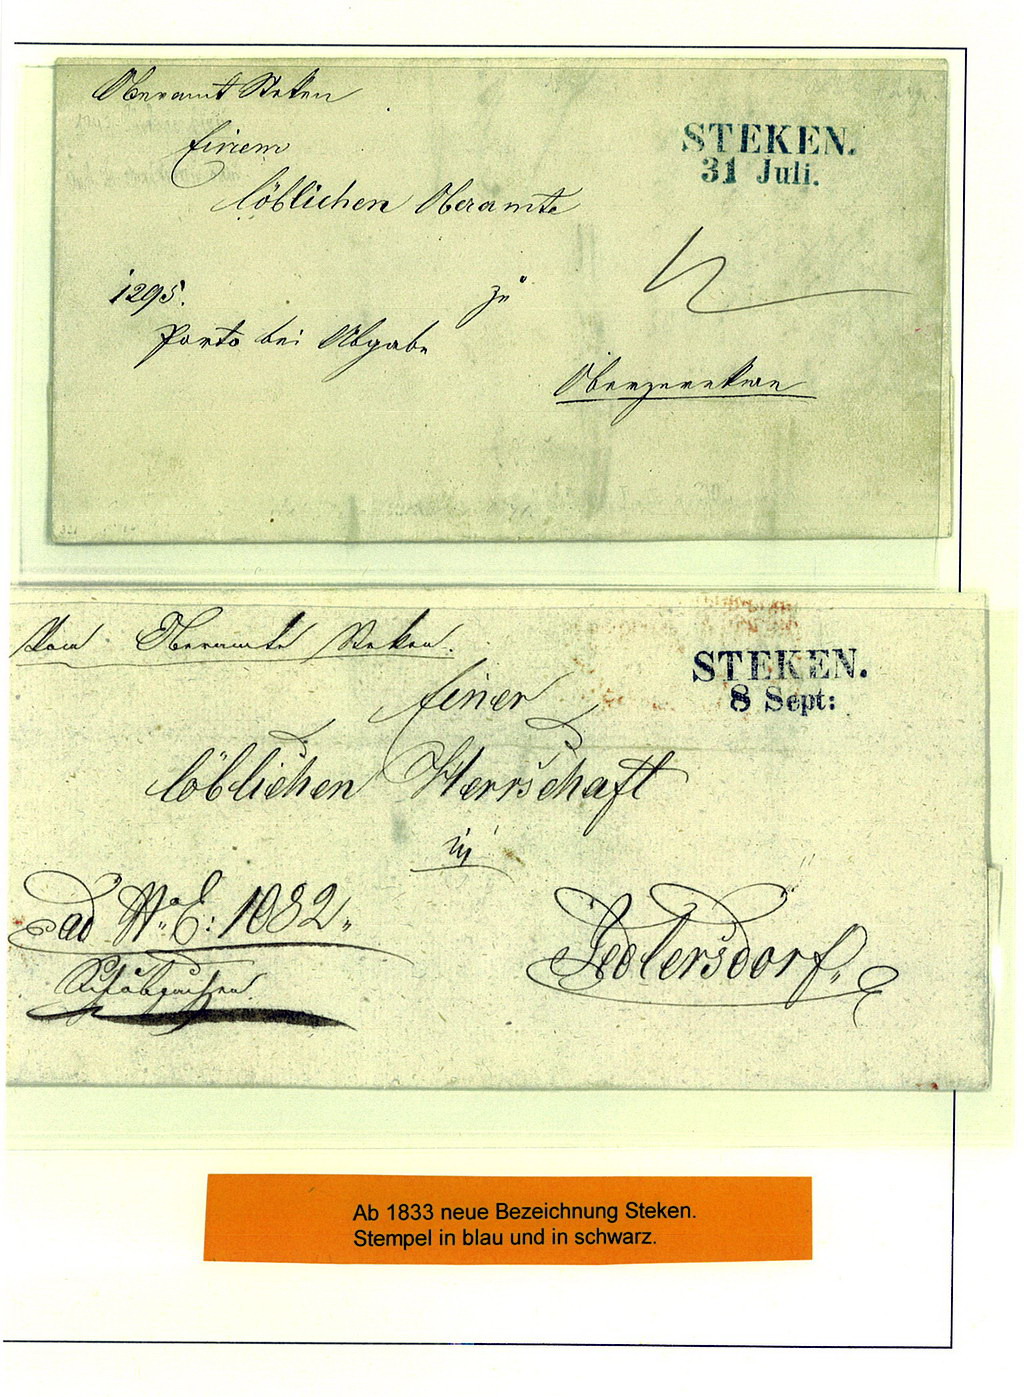 Oberamt Steken
Einem
löblichen Oberamte
STEKEN.
31 Juli.
1295.
zu
Porto bei Abgabe
Oberzerekwe
Vom Oberamte Steken.
Einer
STEKEN.
8 Sept:
löblichen Herrschaft
in
ad N. E: 1082
Jedlersdorf
Ab 1833 neue Bezeichnung Steken.
Stempel in blau und in schwarz.